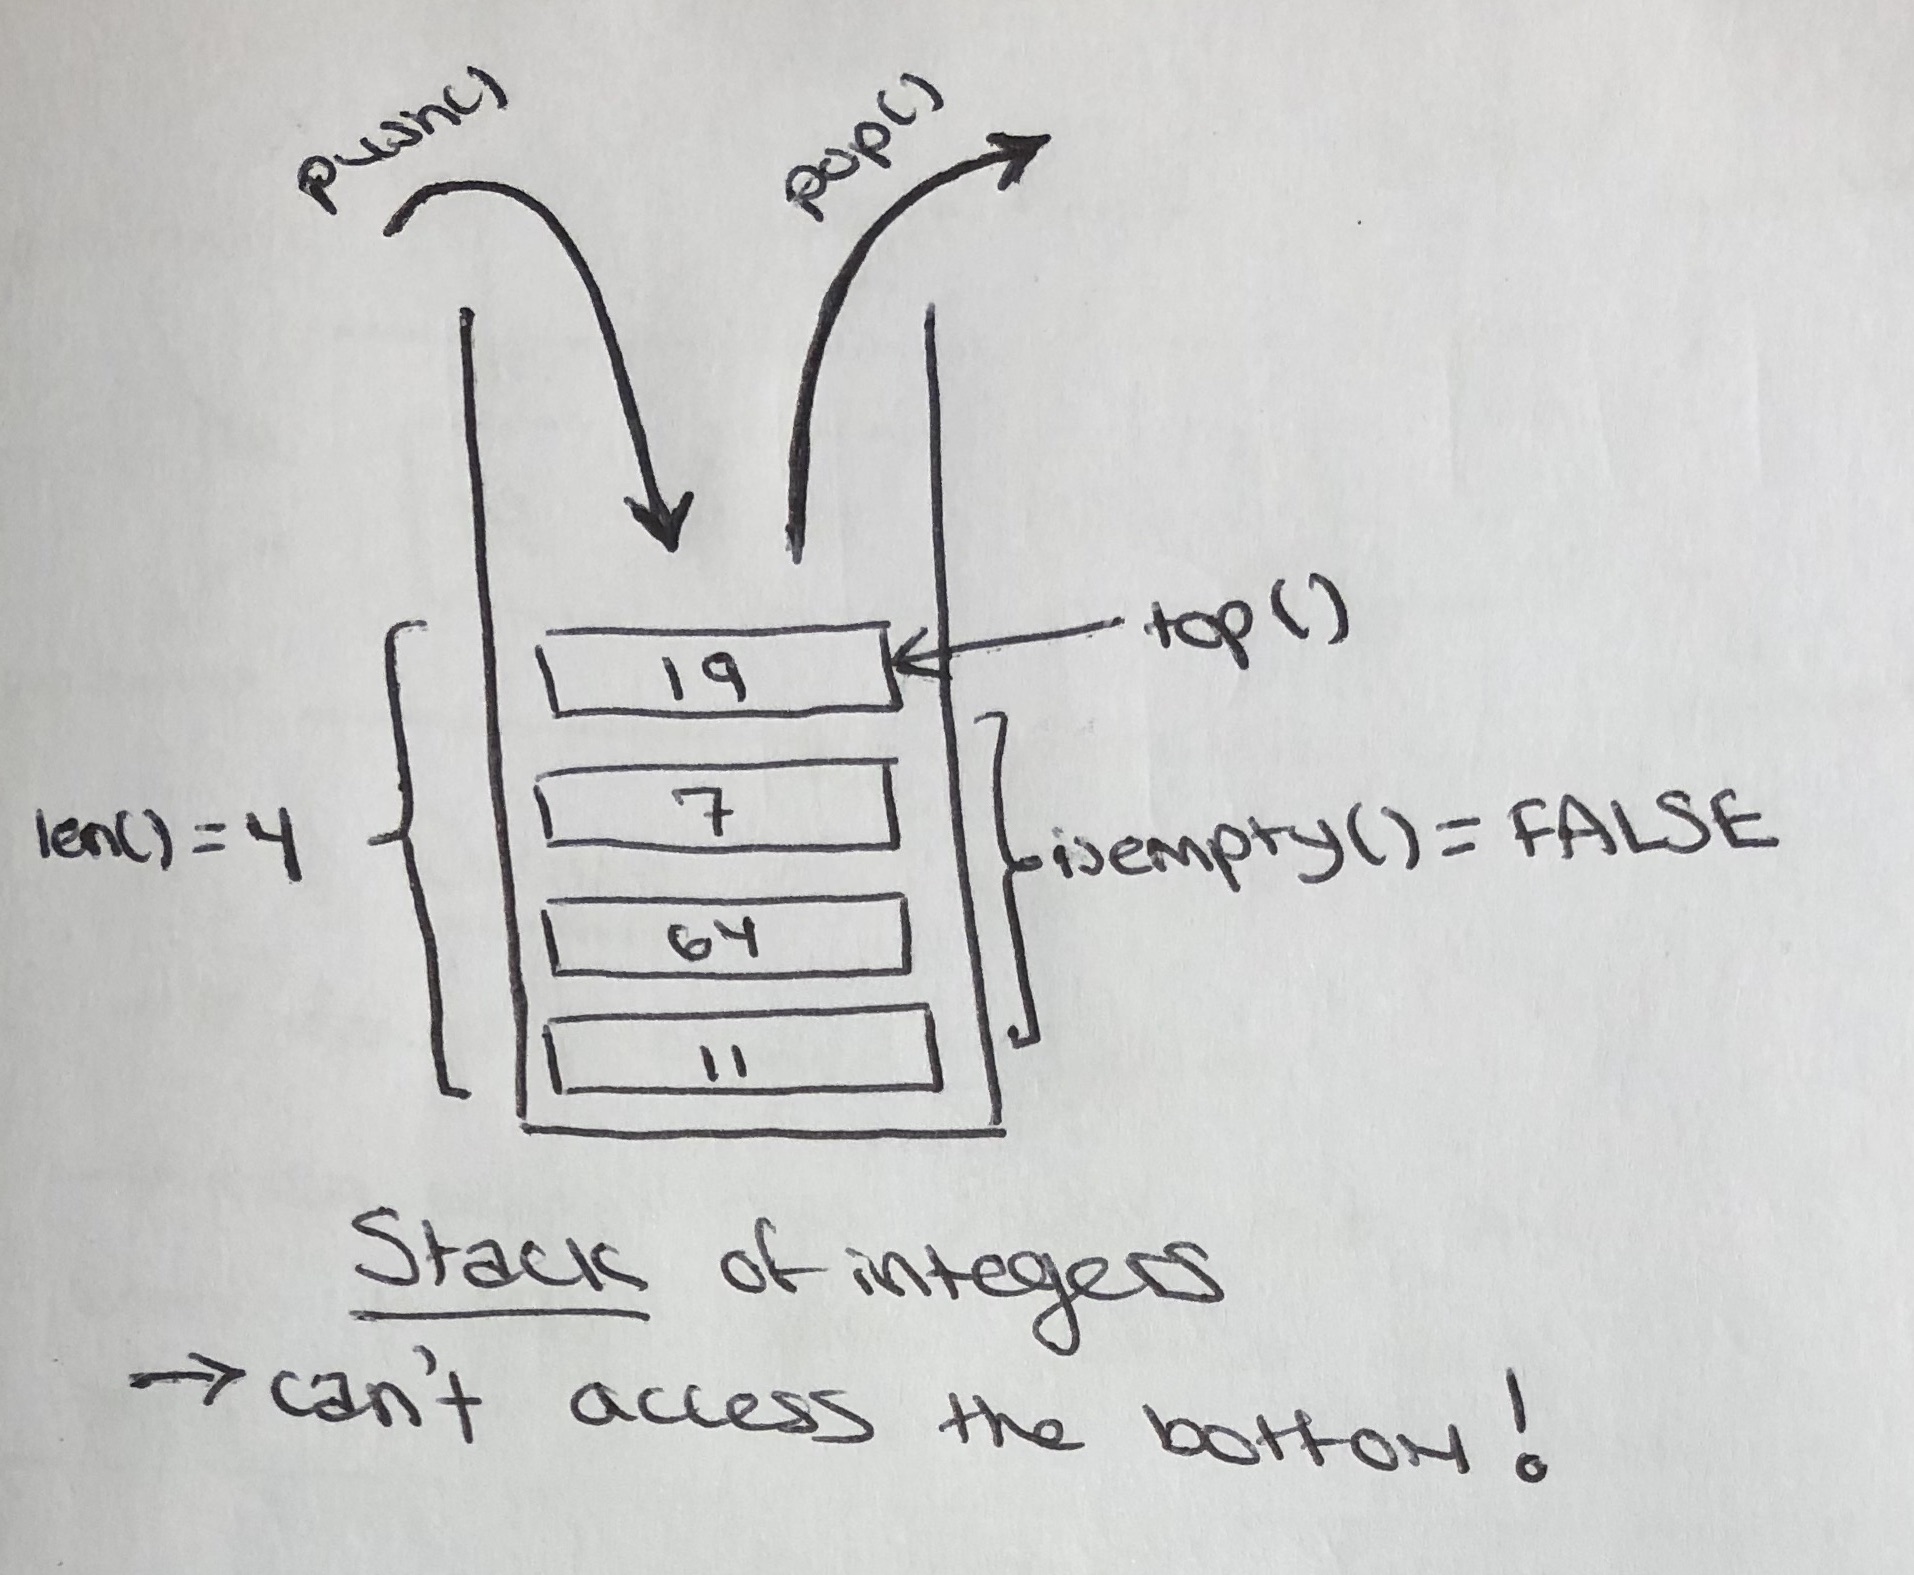 push()
pop()
19
top()
7
len() = 4
isempty() = FALSE
64
11
Stack of integers
→ can't access the bottom!